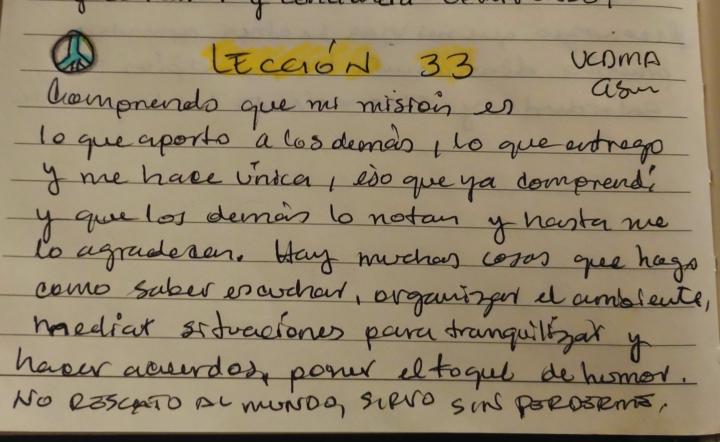 LECCIÓN 33
UCDMA
Comprendo que mi misión es
lo que aporto a los demás, lo que entrego
y me hace única, eso que ya comprendí
y que los demás lo notan y hasta me
lo agradecen. Hay muchas cosas que hago
como saber escuchar, organizar el ambiente,
mediar situaciones para tranquilizar y
hacer acuerdos, poner el toque de humor.
NO RESCATO AL MUNDO, SIRVO SIN PERDERME.